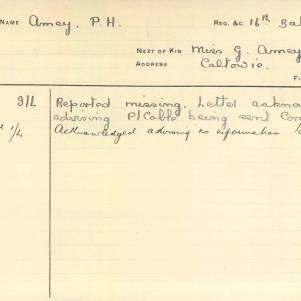 NAME Amey. P.H. REG. &C. 16th Bat
NEXT OF KIN Miss G. Amey
ADDRESS Caltowie.
F
9/L Reported missing. Letter acknow
advising P/Cable being sent Con
1/L Acknowledged advising no information